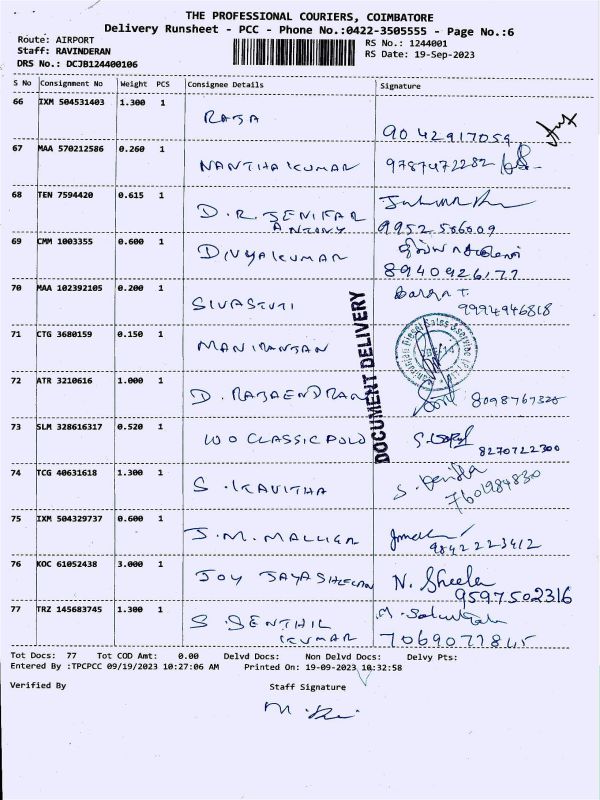 THE PROFESSIONAL COURIERS, COIMBATORE
Delivery Runsheet - PCC - Phone No.:0422-3505555 - Page No.:6
Route: AIRPORT
RS No.: 1244001
Staff: RAVINDERAN
RS Date: 19-Sep-2023
DRS No.: DCJB124400106
S No Consignment No Weight PCS Consignee Details Signature
66 IXM 504531403 1.300 1 RAJA
9042917059
67 MAA 570212586 0.260 1 NANTHAKUMAR 9787472282
68 TEN 7594420 0.615 1 D.R. JENIFAR
ANTONY 9952506009
69 CMM 1003355 0.600 1 DIVYAKUMAR
8940926177
70 MAA 102392105 0.200 1 SIVASTUTI
9994946818
71 CTG 3680159 0.150 1 MANIRANJAN
72 ATR 3210616 1.000 1 D. RAJAENDRAN
DOCUMENT DELIVERY
73 SLM 328616317 0.520 1 WOO CLASSIC POLO
8270722300
74 TCG 40631618 1.300 1 S. KAVITHA
7601984830
75 IXM 504329737 0.600 1 J.M. MALLIGA
9842223412
76 KOC 61052438 3.000 1 JOY JAYASHEELAN N. Sheela
9597502316
77 TRZ 145683745 1.300 1 S SENTHIL
KUMAR 7069077845
Tot Docs: 77 Tot COD Amt: 0.00 Delvd Docs: Non Delvd Docs: Delvy Pts:
Entered By :TPCPCC 09/19/2023 10:27:06 AM Printed On: 19-09-2023 10:32:58
Verified By Staff Signature